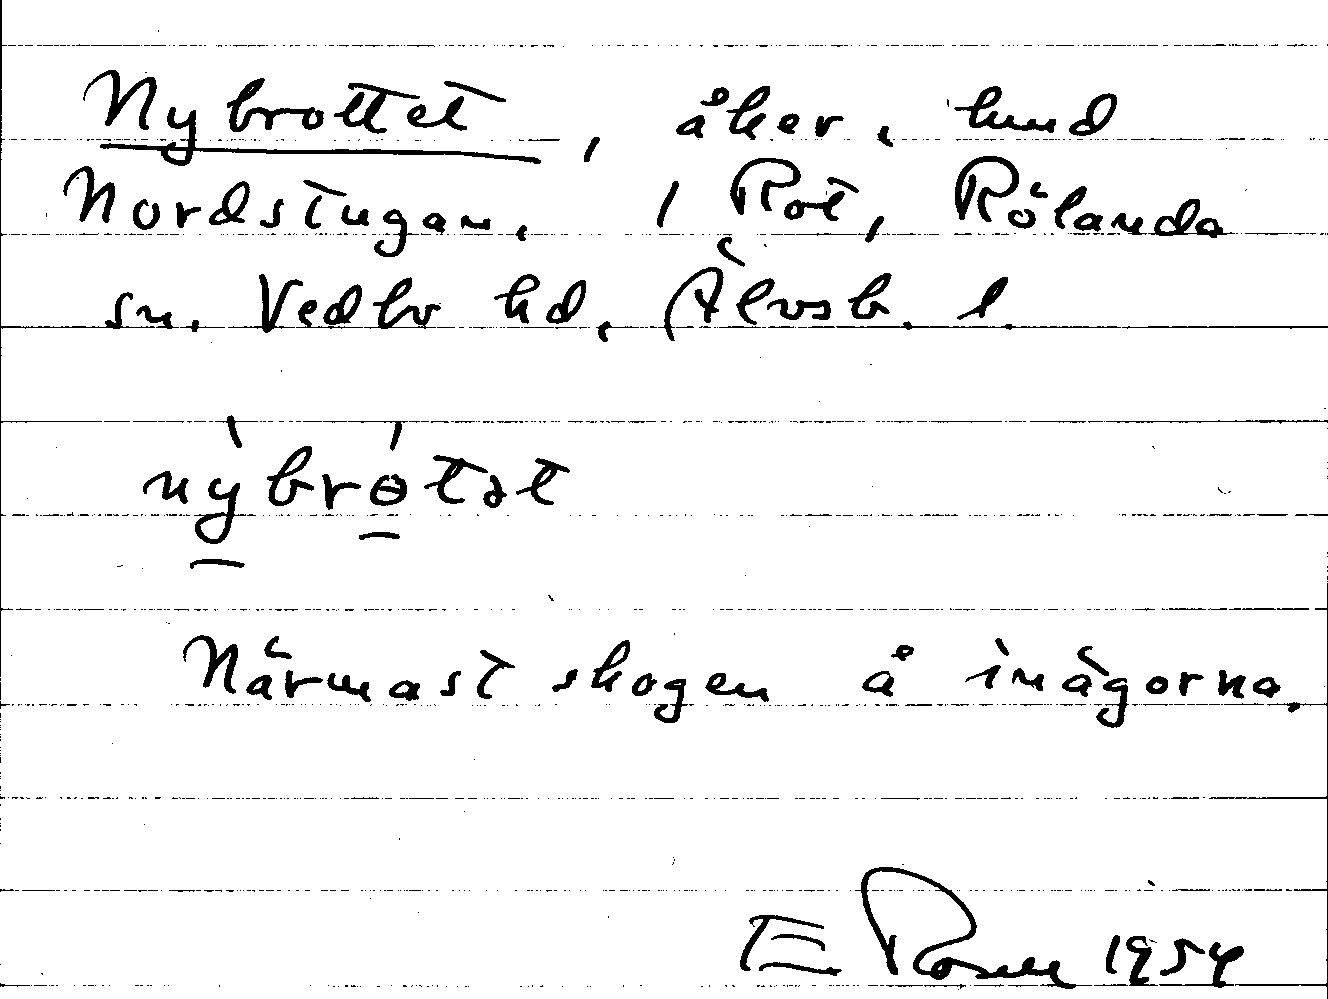 Nybrottet, åker, hmd
Nordstugan, 1 Rot, Rölanda
sn. Vedbo hd, Älvsb. l.
nỳbrɵ́tət
Närmast skogen å inägorna.
E. Rosell 1954